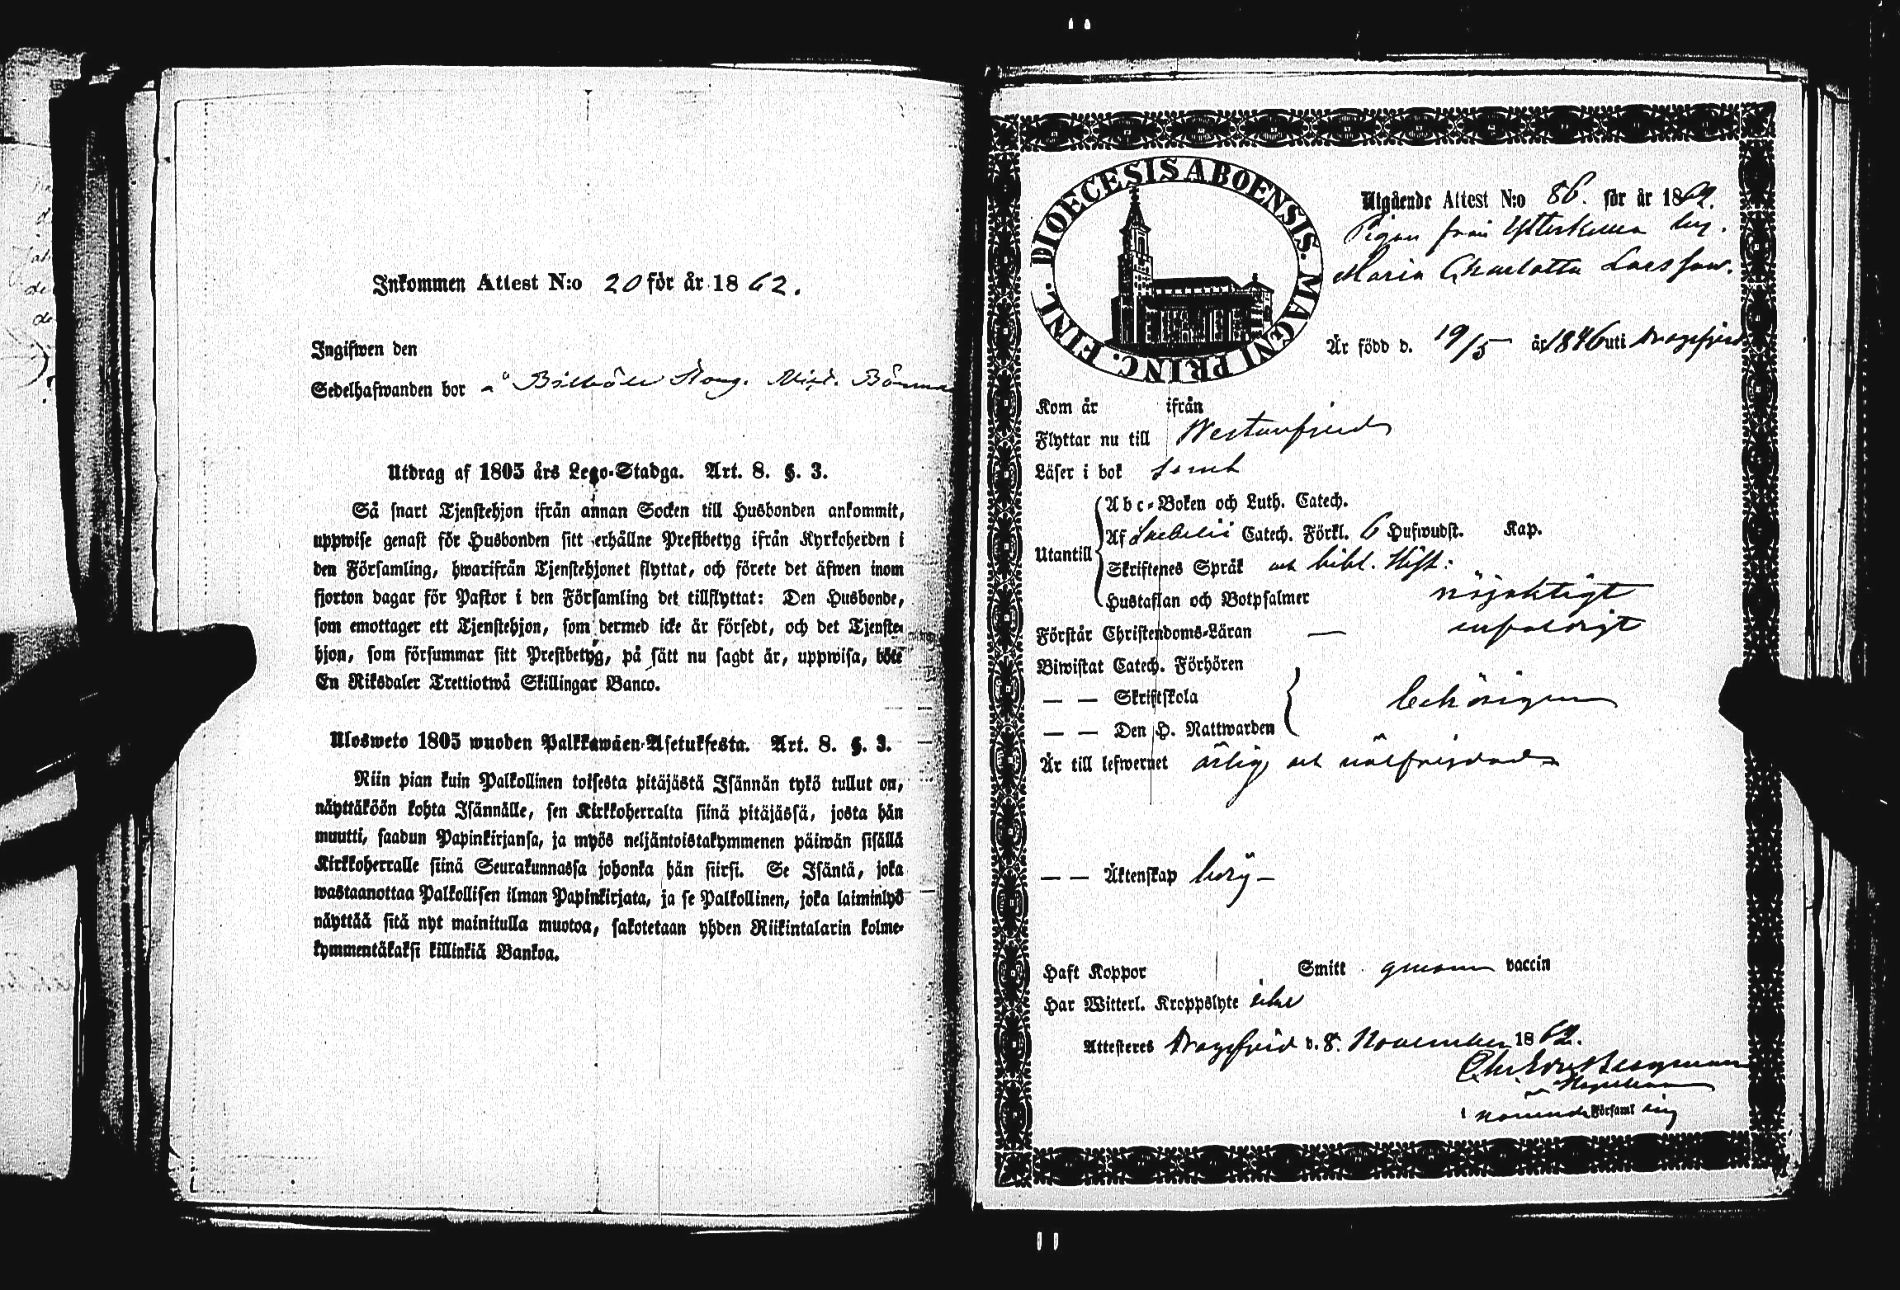 Inkommen Attest N:o 20 för år 1862.
Ingifwen den
Sedelhafwanden bor å
Utdrag af 1805 års Lego-Stadga. Art. 8. §. 3.
Så snart Tjenstehjon ifrån annan Socken till Husbonden ankommit,
uppwise genast för Husbonden sitt erhållne Prestbetyg ifrån Kyrkoherden i
den Församling, hwarifrån Tjenstehjonet flyttat, och förete det äfwen inom
fjorton dagar för Pastor i den Församling det tillflyttat: Den Husbonde,
som emottager ett Tjenstehjon, som dermed icke är försedt, och det Tjenste-
hjon, som försummar sitt Prestbetyg, på sätt nu sagdt är, uppwisa, böte
En Riksdaler Trettiotwå Skillingar Banco.
Ulosweto 1805 wuoden Palkkawäen-Asetuksesta. Art. 8. §. 3.
Niin pian kuin Palkollinen toisesta pitäjästä Isännän tykö tullut on,
näyttäköön kohta Isännälle, sen Kirkkoherralta siinä pitäjässä, josta hän
muutti, saadun Papinkirjansa, ja myös neljäntoistakymmenen päiwän sisällä
Kirkkoherralle siinä Seurakunnassa johonka hän siirsi. Se Isäntä, joka
wastaanottaa Palkollisen ilman Papinkirjata, ja se Palkollinen, joka laiminlyö
näyttää sitä nyt mainitulla muotoa, sakotetaan yhden Riikintalarin kolme-
kymmentäkaksi killinkiä Bankoa.
DIOECESIS ABOENSIS. MAGNI PRINC. FINL.
Utgående Attest N:o 86. för år 1862.
Pigan från Ytterkulla by.
Maria Charlotta Larsson.
Är född d. 19/5 år 1846 uti Dragsfjerd
Kom år ifrån
Flyttar nu till Westanfjerd
Läser i bok
Utantill
Abc-Boken och Luth. Catech.
Af Swebelii Catech. Förkl. 6 Hufwudst. Kap.
Skriftenes Språk och bibl. Hist:
Hustaflan och Botpsalmer nöjaktigt
Förstår Christendoms-Läran — enfaldigt
Biwistat Catech. Förhören
— — Skriftskola behörigen
— — Den H. Nattwarden
Är till lefwernet ärlig och wälfrejdad
— — Äktenskap ledig –
Haft Koppor Smitt genom vaccin
Har Witterl. Kroppslyte icke
Attesteres Dragsfjerd d. 8. November 1862.
Bergman
Kapellan
i Församl